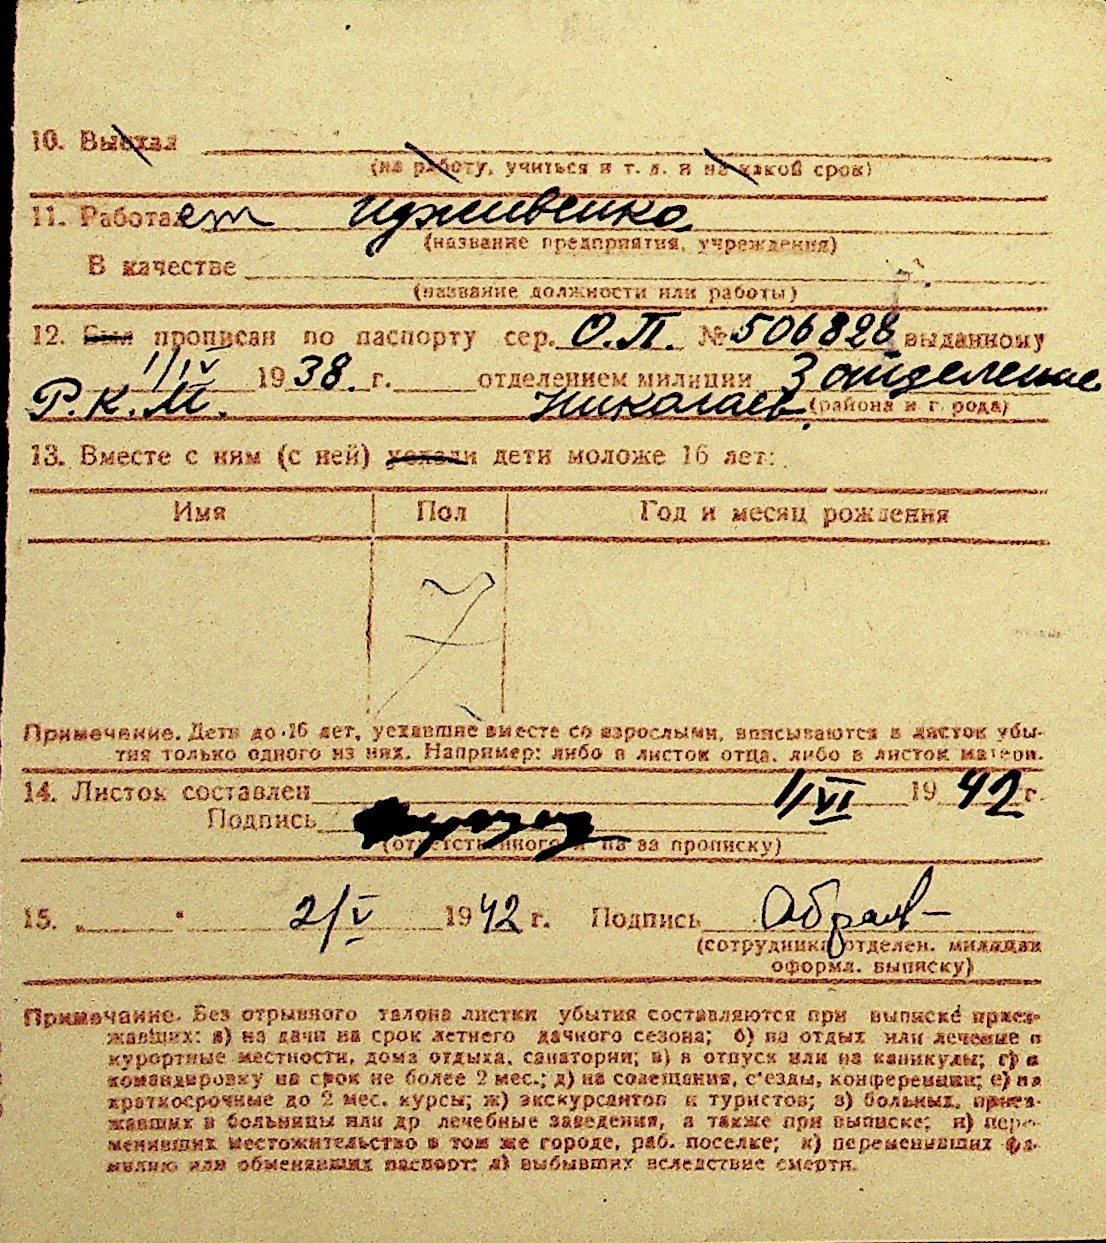 10. Выехал
(на работу, учиться и т. д. и на какой срок)
11. Работает иждивенка
(название предприятия, учреждения)
В качестве
(название должности или работы)
12. Был прописан по паспорту сер. О.П. № 506828 выданному
1/IV 1938. г. отделением милиции 3 отделение
Р.К.М. Николаев (района и г. рода)
13. Вместе с ним (с ней) уехали дети моложе 16 лет:
Имя Пол Год и месяц рождения
Примечание. Дети до 16 лет, уехавшие вместе со взрослыми, вписываются в листок убы-
тия только одного из них. Например: либо в листок отца, либо в листок матери.
14. Листок составлен 1/VI 1942 г.
Подпись
(ответственного за прописку)
15. „ “ 2/V 1942 г. Подпись
(сотрудника отделен. милиции
оформл. выписку)
Примечание. Без отрывного талона листки убытия составляются при выписке приез-
жавших: а) на дачи на срок летнего дачного сезона; б) на отдых или лечение в
курортные местности, дома отдыха, санатории; в) в отпуск или на каникулы; г) в
командировку на срок не более 2 мес.; д) на совещания, с'езды, конференции; е) на
краткосрочные до 2 мес. курсы; ж) экскурсантов и туристов; з) больных, приез-
жавших в больницы или др лечебные заведения, а также при выписке; и) пере-
менивших местожительство в том же городе, раб. поселке; к) переменивших фа-
милию или обменявших паспорт; л) выбывших вследствие смерти.